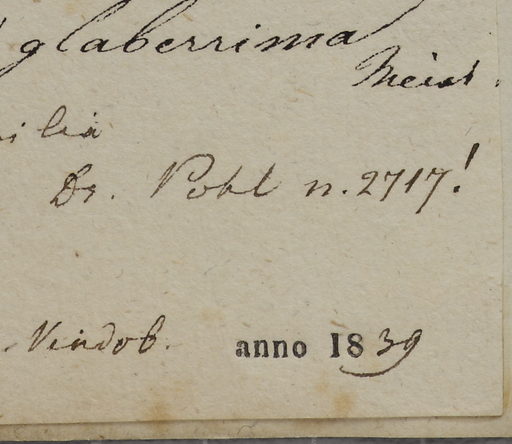 glaberrima
Meisn.
silia
Dr. Pohl n. 2717!
Vindob. anno 1839